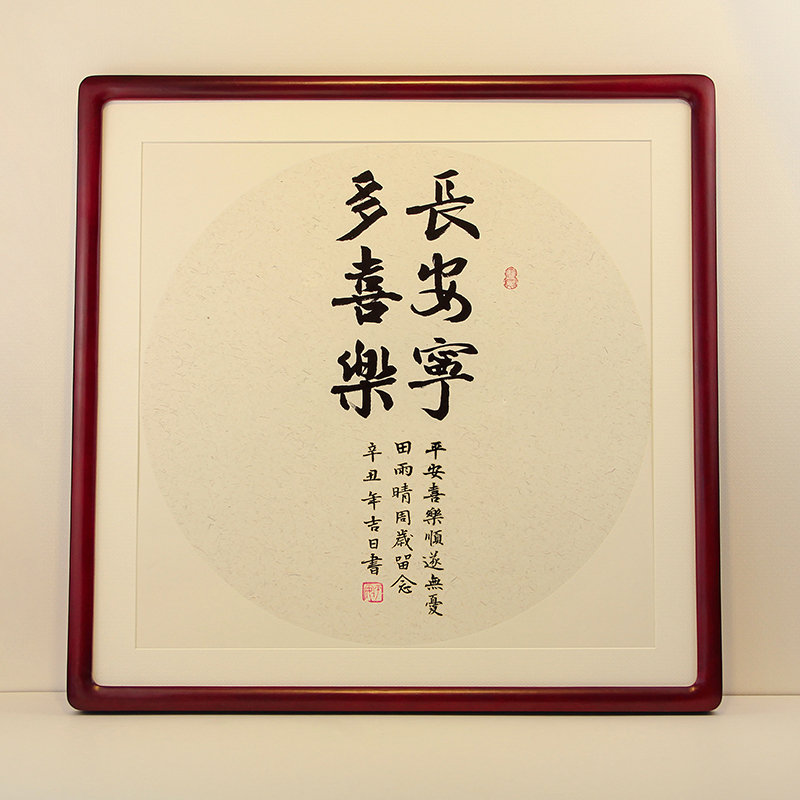 長安寧
多喜樂
平安喜樂順遂無憂
田雨晴周歲留念
辛丑年吉日書